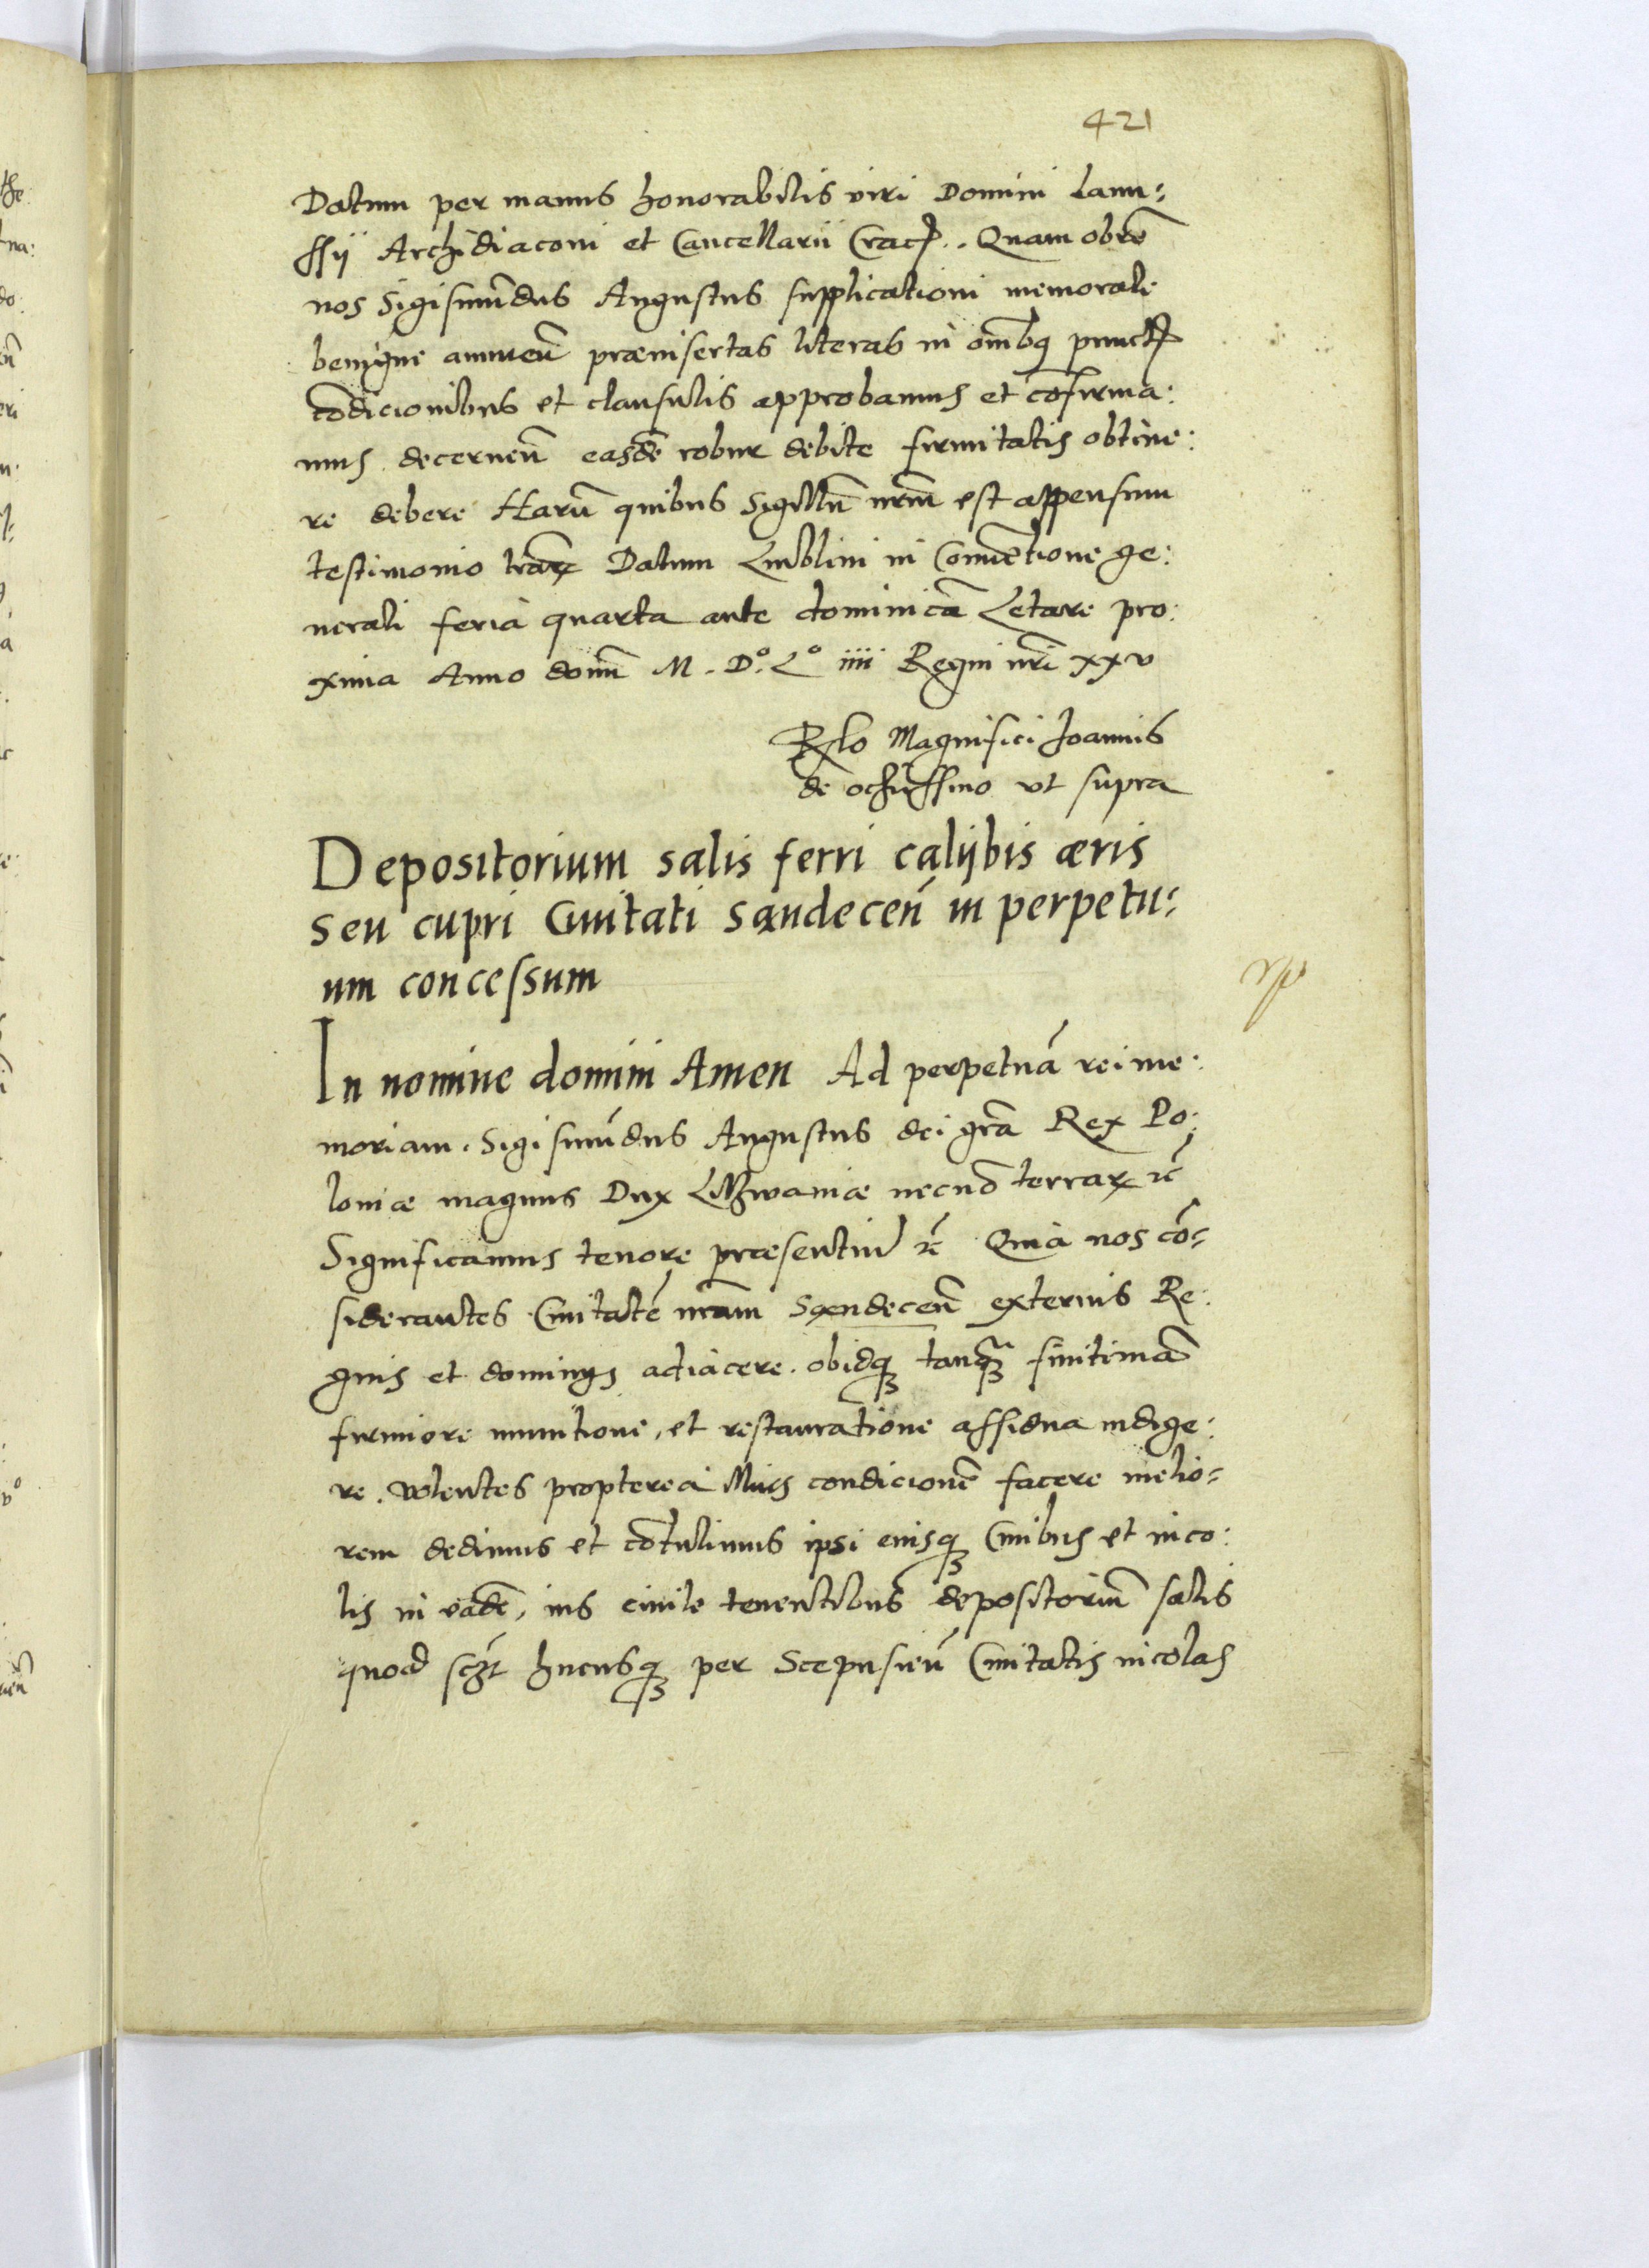 421
Datum per manus honorabilis viri Domini Ianu-
ssÿ Archidiaconi et Cancellarii Crac. Quam obrē
nos Sigismūdus Augustus supplicationi memorate
benigne annueñ præinsertas literas in omībq punctis
cōdicionibus et clausulis approbamus et cōfirma:
mus decerneñ easdē robur debite firmitatis obtine:
re debere Harū quibus Sigillū nrm̄ est appensum
testimonio lrarꝝ Datum Lublini in Conuētione ge:
nerali feria quarta ante dominicā Letare pro:
xima Anno domī M. D.º Lº iiii Regni nrī xxv
Rlo Magnifici Joannis
de ochūssino vt supra
Depositorium salis ferri calÿbis æris
seu cupri Ciuitati Sandeceñ in perpetu-
um concessum
In nomine domini Amen Ad perpetuā rei me:
moriam. Sigismūdus Augustus dei grā Rex Po:
loniæ magnus Dux Lithwaniæ necnō terrarꝝ ꝛc̄
Significamus tenore præsentiū ꝛc̄ Quia nos cō-
siderantes Ciuitatē nrām Sandeceñ externis Re:
gnis et dominÿs adiacere. obidqꝫ tanqꝫ finitimā
firmiore munitione, et restauratione assidua indige:
re. volentes propterea illius condicionē facere melio-
rem dedimus et cōtulimus ipsi eiusqꝫ Ciuibus et inco:
lis in eadē, ius ciuile tenentibus depositoriū salis
quod sczt̄ hucusqꝫ per Scepusieñ Ciuitatis incolas